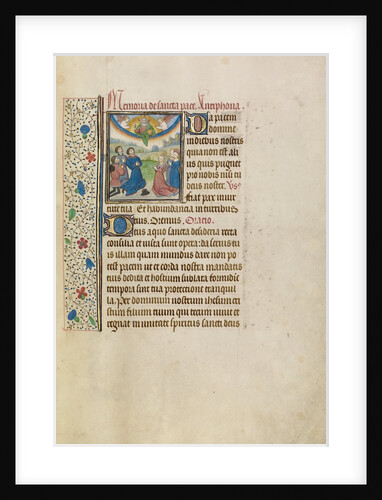 Memoria de sancta pace. Antiphona.
Da pacem
domine
in diebus nostris
quia non est ali
us qui pugnet
pro nobis nisi tu
deus noster. Vs
fiat pax in uir
tute tua Et habundancia in turribus
tuis. Oremus. Oracio.
Deus a quo sancta desideria recta
consilia et iusta sunt opera: da seruis tu
is illam quam mundus dare non po
test pacem ut et corda nostra mandatis
tuis dedita et hostium sublata formidie
tempora sint tua protectione tranquil
la. Per dominum nostrum ihesum cri
stum filium tuum qui tecum uiuit et
regnat in unitate spiritus sancti deus